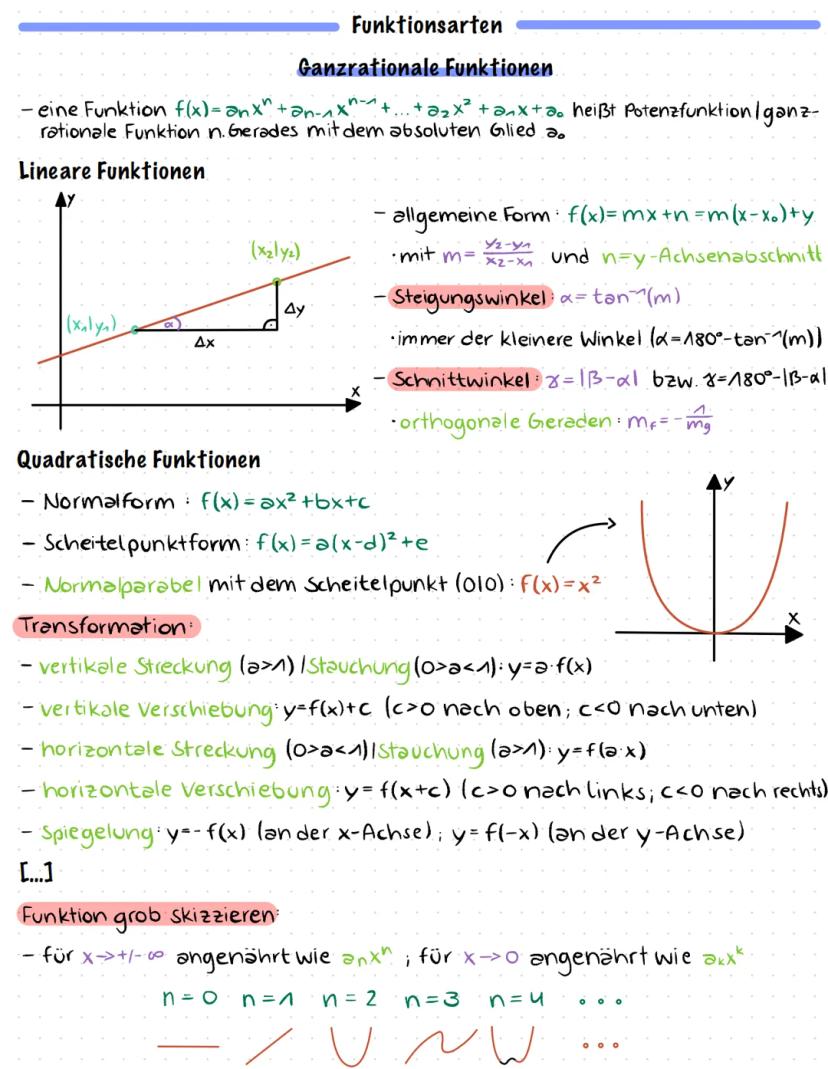 Funktionsarten
Ganzrationale Funktionen
– eine Funktion f(x) = aₙxⁿ + aₙ₋₁xⁿ⁻¹ + ... + a₂x² + a₁x + a₀ heißt Potenzfunktion/ganz-
rationale Funktion n. Gerades mit dem absoluten Glied a₀
Lineare Funktionen
y
(x₂|y₂)
(x₁|y₁)
α
Δy
Δx
x
– allgemeine Form: f(x) = mx + n = m(x-x₀) + y
· mit m = (y₂-y₁)/(x₂-x₁) und n = y-Achsenabschnitt
– Steigungswinkel: α = tan⁻¹(m)
· immer der kleinere Winkel (α = 180° - tan⁻¹(m))
– Schnittwinkel: γ = |β-α| bzw. γ = 180° - |β-α|
· orthogonale Geraden: m_f = - 1/m_g
Quadratische Funktionen
– Normalform: f(x) = ax² + bx + c
– Scheitelpunktform: f(x) = a(x-d)² + e
– Normalparabel mit dem Scheitelpunkt (0|0): f(x) = x²
y
x
Transformation:
– vertikale Streckung (a>1) / Stauchung (0>a<1): y = a·f(x)
– vertikale Verschiebung: y = f(x) + c (c>0 nach oben; c<0 nach unten)
– horizontale Streckung (0>a<1) | Stauchung (a>1): y = f(a·x)
– horizontale Verschiebung: y = f(x+c) (c>0 nach links; c<0 nach rechts)
– Spiegelung: y = -f(x) (an der x-Achse); y = f(-x) (an der y-Achse)
[...]
Funktion grob skizzieren:
– für x→+/-∞ angenährt wie aₙxⁿ; für x→0 angenährt wie aₖxᵏ
n = 0 n = 1 n = 2 n = 3 n = 4 ...
...